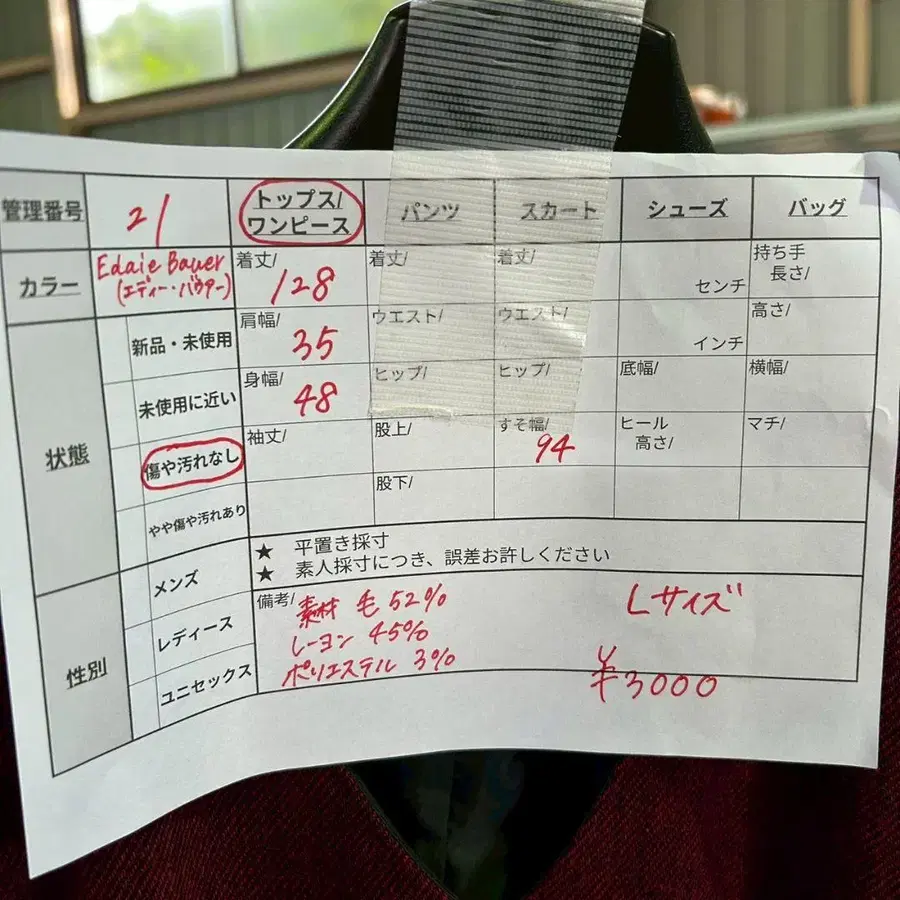 管理番号 21 トップス/ パンツ スカート シューズ バッグ
ワンピース
カラー Edaie Bauer 着丈/ 着丈/ 着丈/ センチ 持ち手
(エディー・バウアー) 128 長さ/
状態 新品・未使用 肩幅/ 35 ウエスト/ ウエスト/ インチ 高さ/
未使用に近い 身幅/ 48 ヒップ/ ヒップ/ 底幅/ 横幅/
傷や汚れなし 袖丈/ 股上/ すそ幅/ 94 ヒール マチ/
高さ/
やや傷や汚れあり 股下/
★ 平置き採寸
★ 素人採寸につき、誤差お許しください
性別 メンズ
レディース
ユニセックス
備考/ 素材 毛 52% Lサイズ
レーヨン 45%
ポリエステル 3% ¥3000